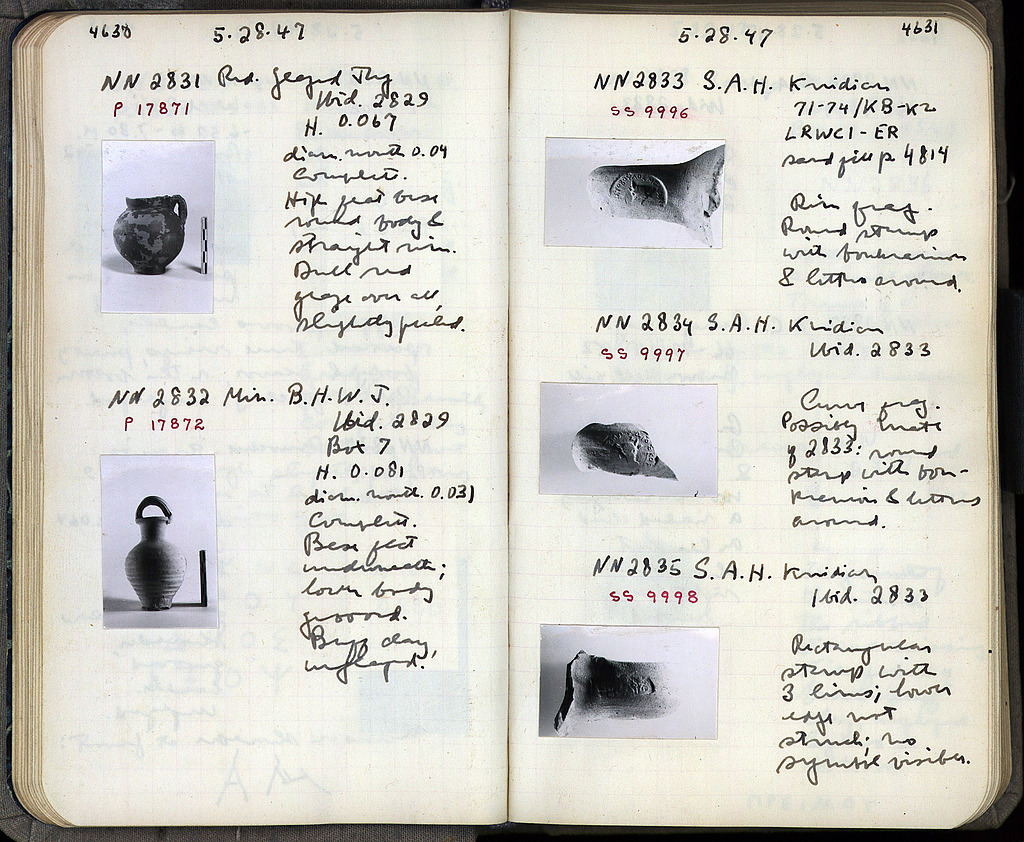 4630
5·28·47
NN 2831 Red. glazed Jug
P 17871
Ibid. 2829
H. 0.067
diam. mouth 0.04
Complete.
High feet base
round body &
straight rim.
Dull red
glaze over all,
slightly peeled.
NN 2832 Min. B.H.W.J.
P 17872
Ibid. 2829
Box 7
H. 0.081
diam. mouth. 0.031
Complete.
Base flat
underneath;
lower body
grooved.
Buff clay,
unglazed.
4631
5·28·47
NN 2833 S.A.H. Knidian
SS 9996
71-74/KB-K2
LRWC1-ER
sand fill p. 4814
Rim frag.
Round stamp
with boukranion
& letters around.
NN 2834 S.A.H. Knidian
SS 9997
Ibid. 2833
Curve frag.
Possibly mate
of 2833: round
stamp with bou-
kranion & letters
around.
NN 2835 S.A.H. Knidian
SS 9998
Ibid. 2833
Rectangular
stamp with
3 lines; lower
edge not
struck; no
symbol visible.